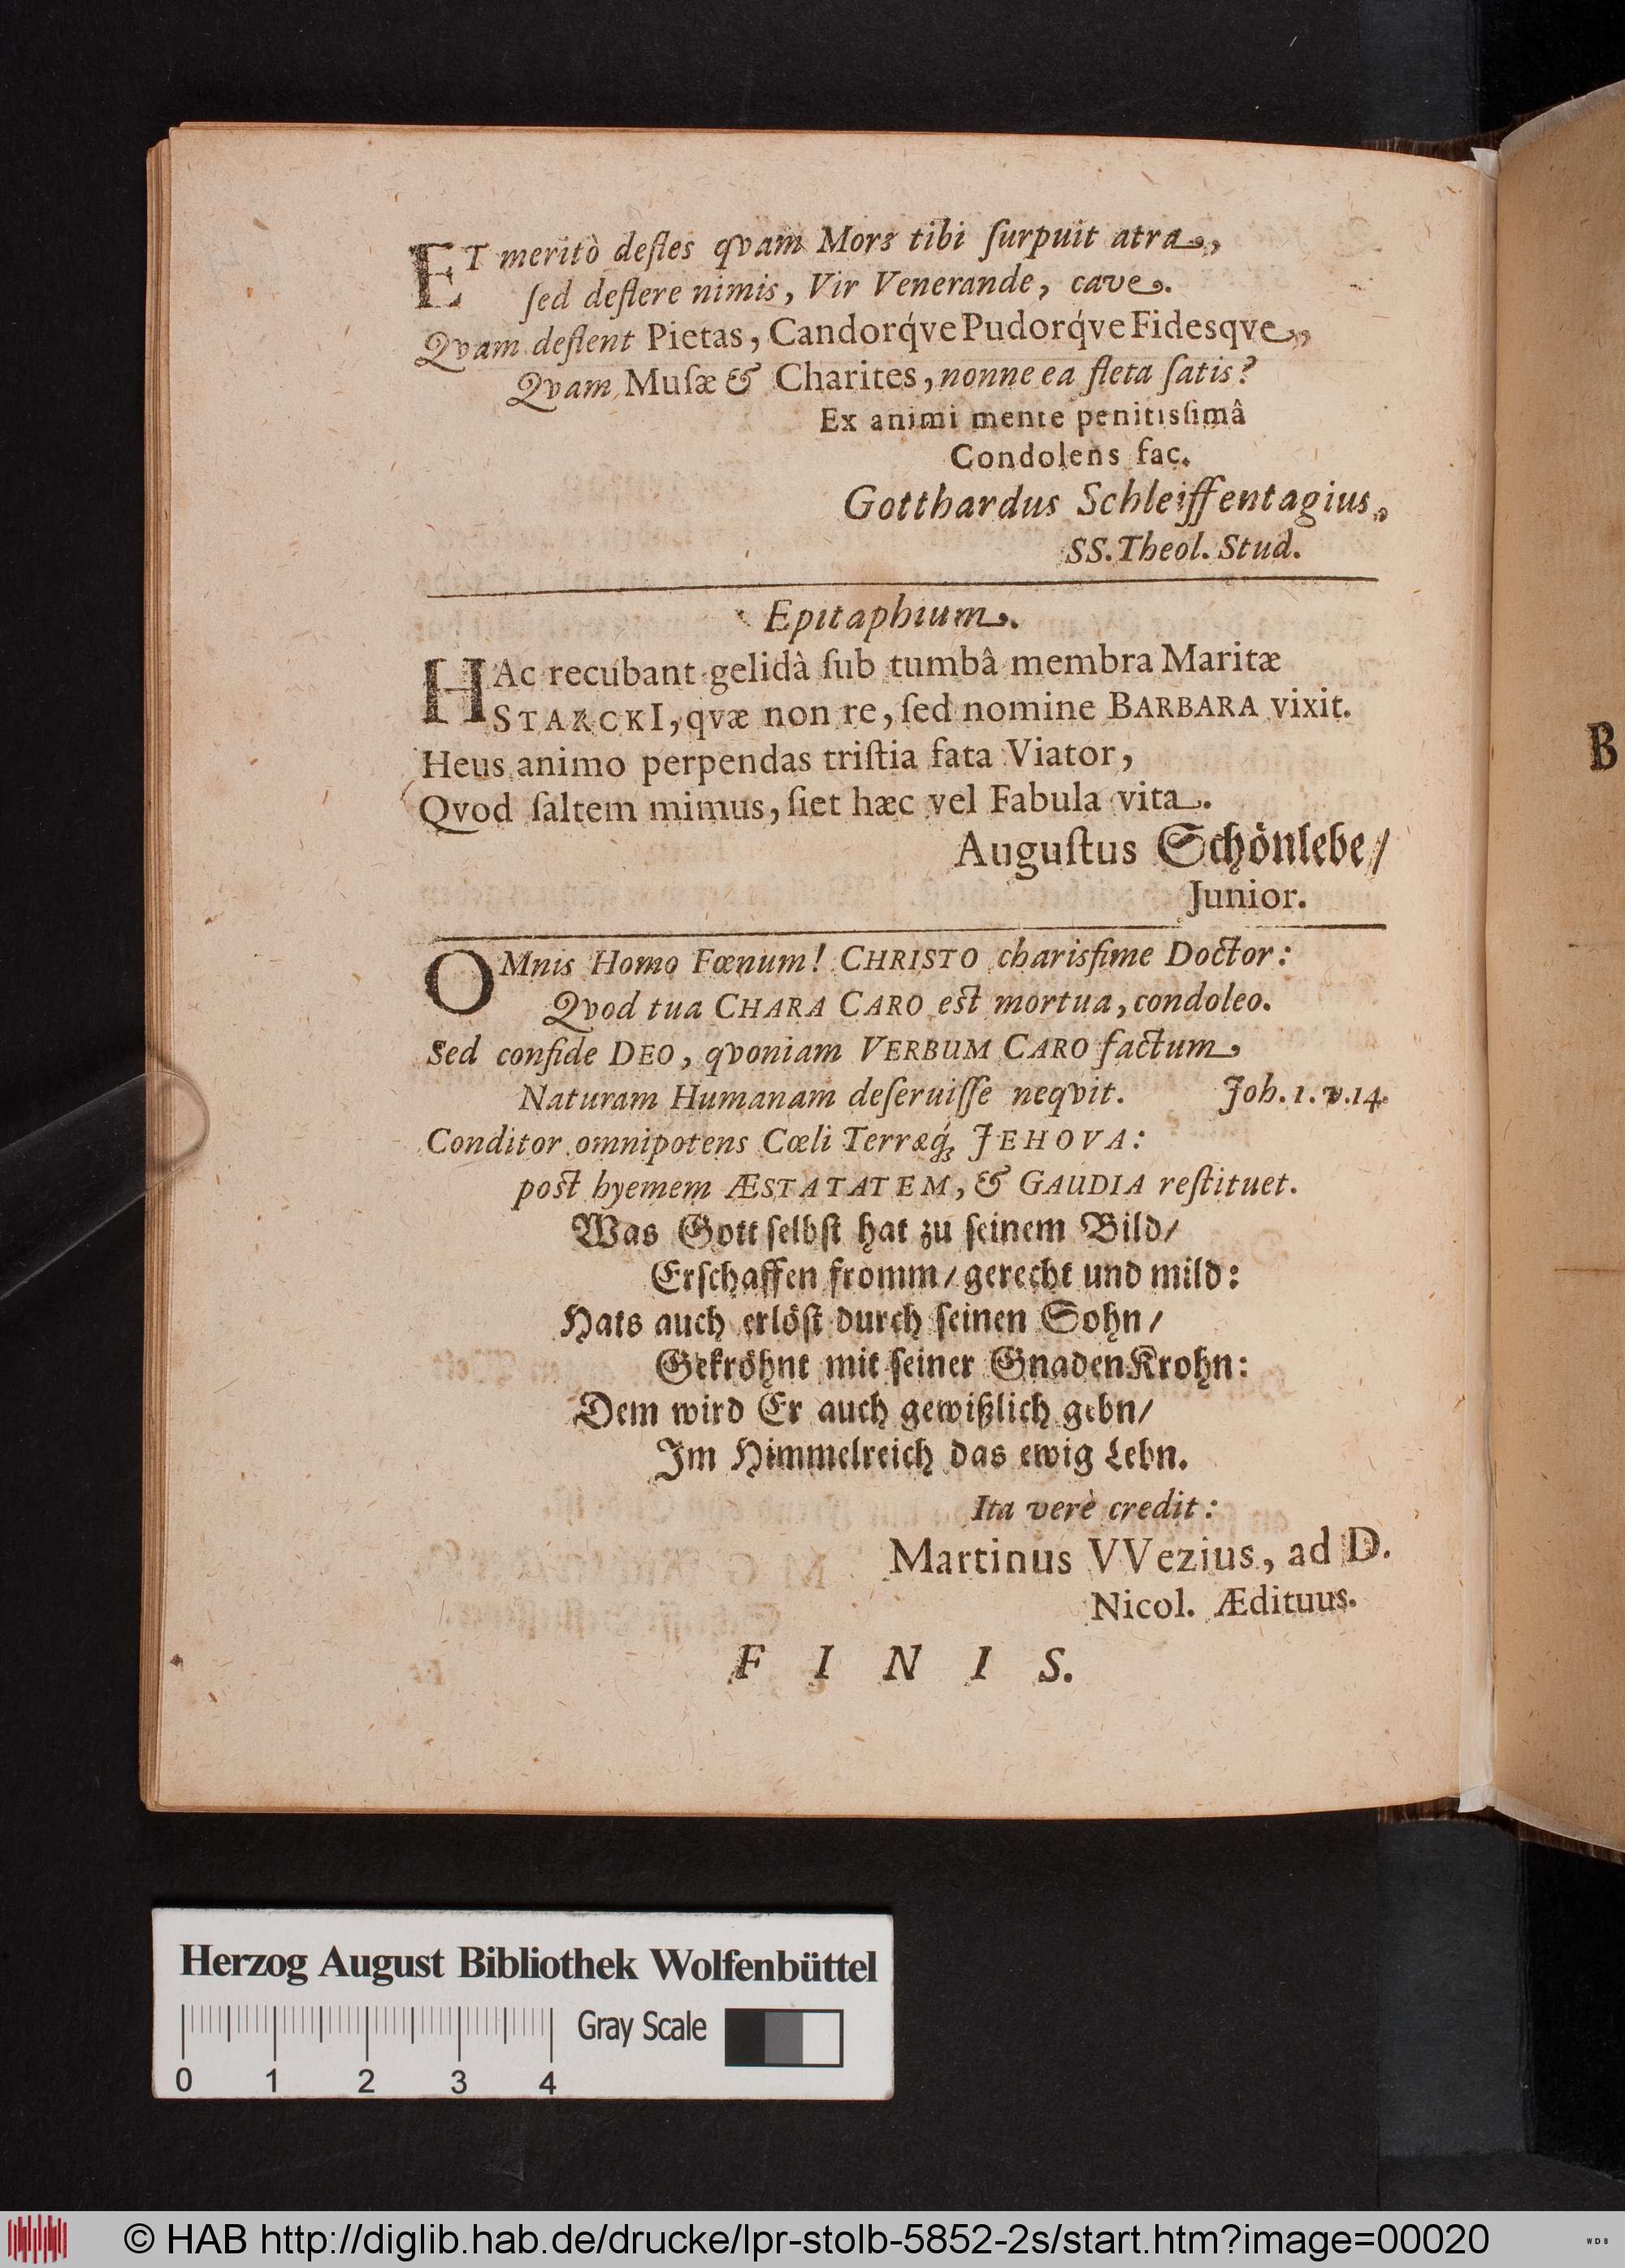 ET meritò defles qvam Mors tibi ſurpuit atra,
ſed deflere nimis, Vir Venerande, cave.
Qvam deflent Pietas, Candorq́ve Pudorq́ve Fidesqve,
Qvam Muſæ & Charites, nonne ea fleta ſatis?
Ex animi mente penitisſimâ
Condolens fac.
Gotthardus Schleiffentagius,
SS. Theol. Stud.
Epitaphium.
HAc recubant gelidà ſub tumbâ membra Maritæ
STARCKI, qvæ non re, ſed nomine BARBARA vixit.
Heus animo perpendas triſtia fata Viator,
Qvod ſaltem mimus, ſiet hæc vel Fabula vita.
Auguſtus Schönlebe/
Junior.
OMnis Homo Fœnum! CHRISTO charisſime Doctor:
Qvod tua CHARA CARO est mortua, condoleo.
Sed confide DEO, qvoniam VERBUM CARO factum,
Naturam Humanam deſeruiſſe neqvit. Joh. 1. v. 14.
Conditor omnipotens Cœli Terræq́; JEHOVA:
post hyemem ÆSTATATEM, & GAUDIA reſtituet.
Was Gott ſelbſt hat zu ſeinem Bild/
Erſchaffen fromm/ gerecht und mild:
Hats auch erlöſt durch ſeinen Sohn/
Gekröhnt mit ſeiner GnadenKrohn:
Dem wird Er auch gewißlich gebn/
Im Himmelreich das ewig Lebn.
Ita verè credit:
Martinus VVezius, ad D.
Nicol. Ædituus.
F I N I S.
B
Herzog August Bibliothek Wolfenbüttel
Gray Scale
0 1 2 3 4
© HAB http://diglib.hab.de/drucke/lpr-stolb-5852-2s/start.htm?image=00020
WDB